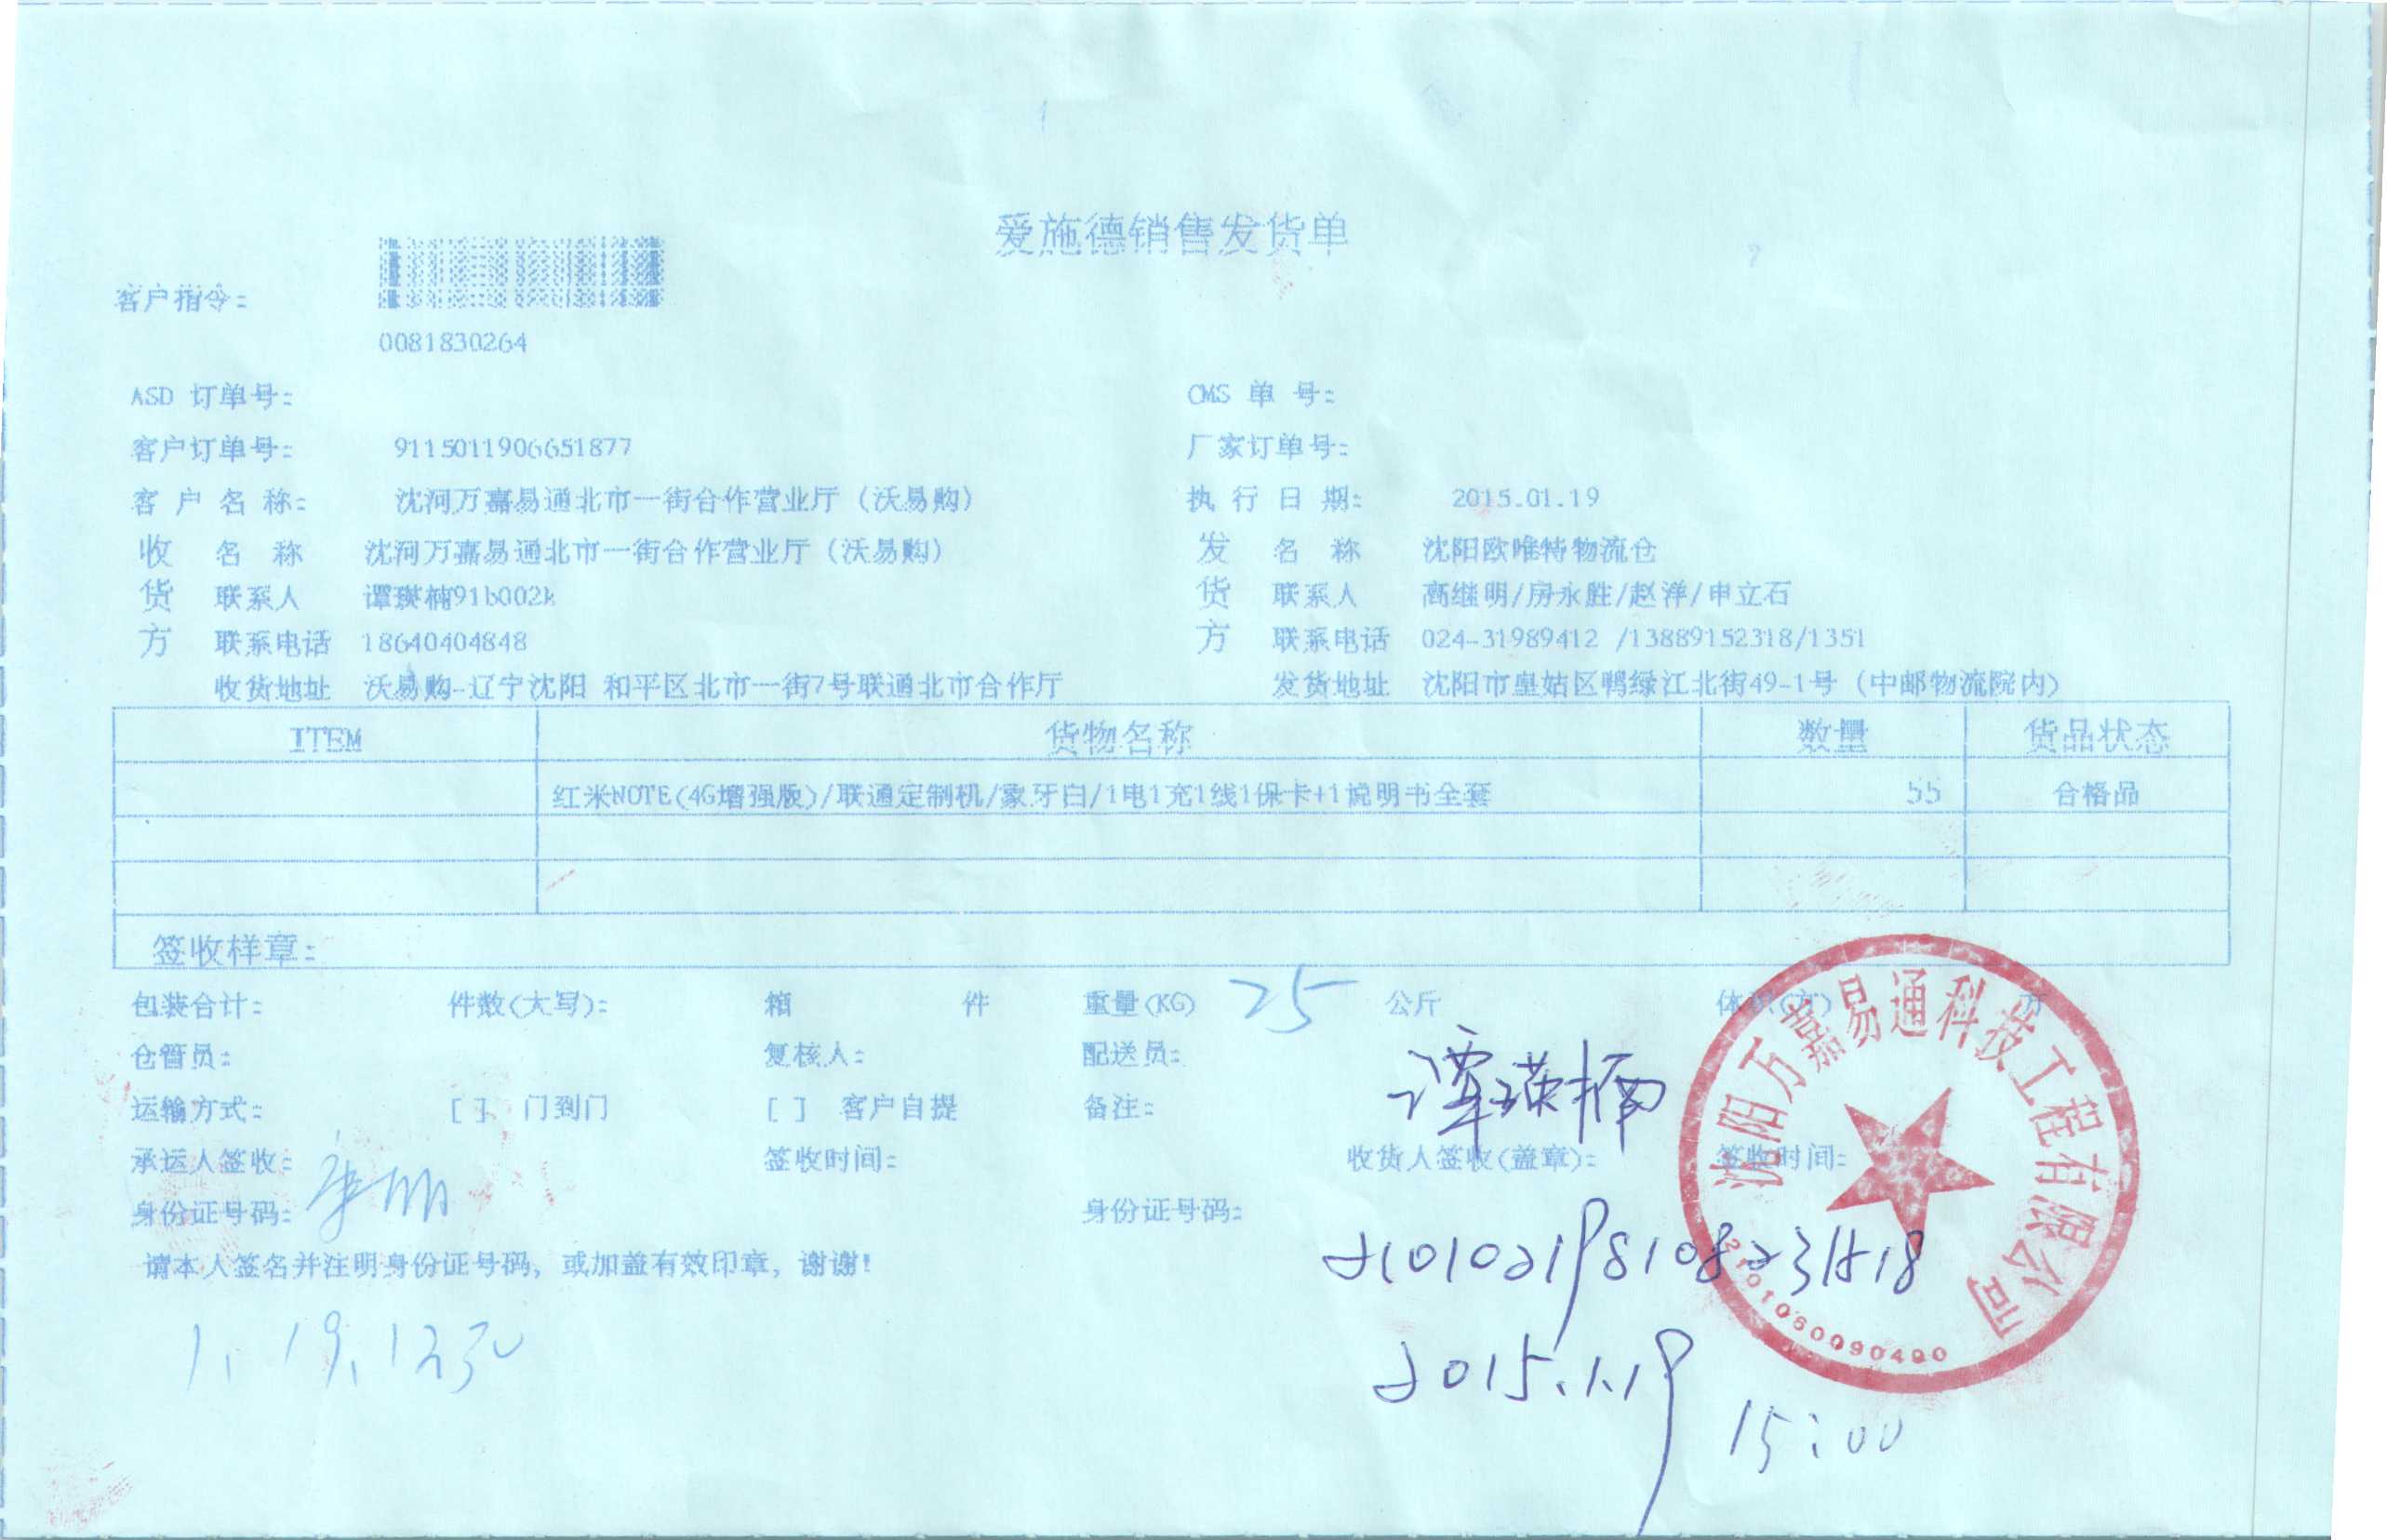 爱施德销售发货单
客户指令:
0081830264
ASD 订单号: CMS 单 号:
客户订单号: 9115011906651877 厂家订单号:
客 户 名 称: 沈河万嘉易通北市一街合作营业厅（沃易购） 执 行 日 期: 2015.01.19
收 名 称 沈河万嘉易通北市一街合作营业厅（沃易购） 发 名 称 沈阳欧唯特物流仓
货 联系人 谭瑛楠91b002k 货 联系人 高继明/房永胜/赵洋/申立石
方 联系电话 18640404848 方 联系电话 024-31989412 /13889152318/1351
收货地址 沃易购-辽宁沈阳 和平区北市一街7号联通北市合作厅 发货地址 沈阳市皇姑区鸭绿江北街49-1号（中邮物流院内）
ITEM 货物名称 数量 货品状态
红米NOTE(4G增强版)/联通定制机/象牙白/1电1充1线1保卡+1说明书全套 55 合格品
签收样章:
包装合计: 件数(大写): 箱 件 重量(KG) 25 公斤 体积(方) 方
仓管员: 复核人: 配送员:
谭瑛楠
运输方式: [ ] 门到门 [ ] 客户自提 备注:
承运人签收: 签收时间: 收货人签收(盖章): 签收时间:
身份证号码: 身份证号码:
请本人签名并注明身份证号码，或加盖有效印章，谢谢！
1.19.1230
2015.1.19
15:00
沈阳万嘉易通科技工程有限公司